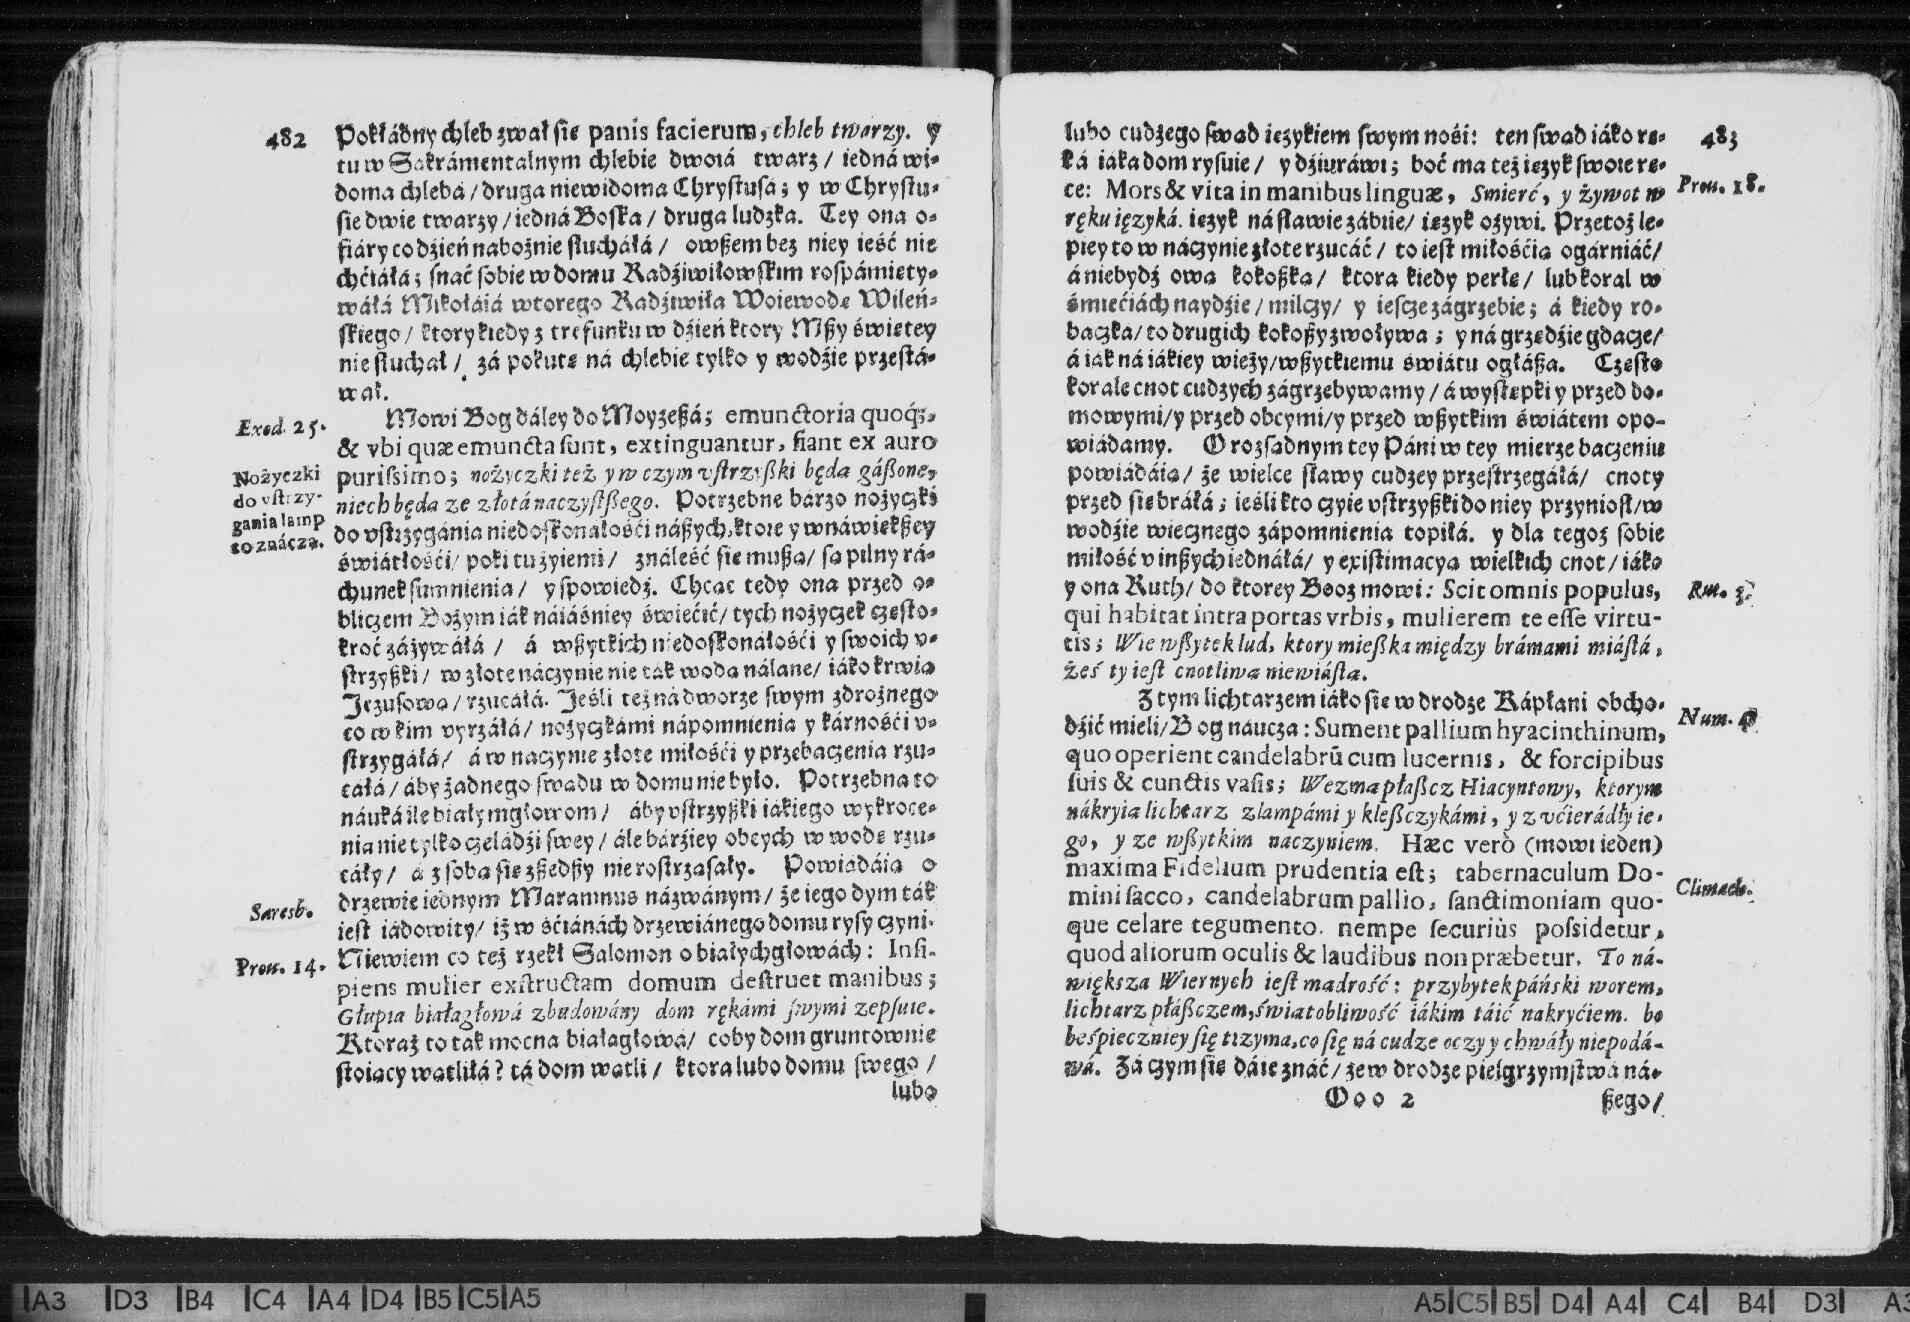 482
Pokłádny chleb zwał się panis facierum, chleb twarzy. y
tu w Sakrámentalnym chlebie dwoiá twarz / iedná wi-
doma chlebá / druga niewidoma Chrystusá; y w Chrystu-
sie dwie twarzy / iedná Boska / druga ludzka. Tey ona o-
fiáry co dźień nabożnie słucháłá / owßem bez niey ieść nie
chćiáłá; snać sobie w domu Radźiwiłowskim rospámięty-
wáłá Mikołáiá wtorego Radźiwiła Woiewodę Wileń-
skiego / ktory kiedy z trefunku w dźień ktory Mßy świętey
nie słuchał / zá pokutę ná chlebie tylko y wodźie przestá-
wał.
Exod. 25.
Mowi Bog dáley do Moyzeßá; emunctoria quoq́;
& vbi quæ emuncta sunt, extinguantur, fiant ex auro
Nożyczki
do vstrzy-
gania lamp
co znáczą.
purissimo; nożyczki też y w czym vstrzyßki będą gáßone,
niech będą ze złotá naczystßego. Potrzebne bárzo nożyczki
do vstrzygánia niedoskonałośći nášych, ktore y w náwiększey
świátłośći / poki tu żyiemi / ználeść się mußą / są pilny rá-
chunek sumnienia / y spowiedź. Chcąc tedy ona przed o-
bliczem Bożym iák náiáśniey świećić / tych nożyczek często-
kroć záżywáłá / á wßytkich niedoskonáłośći y swoich v-
strzyßki / w złote náczynie nie ták wodą nálane / iáko krwią
Jezusową / rzucáłá. Jeśli też ná dworze swym zdrożnego
co w kim vyrzáłá / nożyczkámi nápomnienia y kárnośći v-
strzygáłá / á w naczynie złote miłośći y przebaczenia rzu-
cáłá / áby żadnego swadu w domu nie było. Potrzebna to
náuká ile białymgłowom / áby vstrzyßki iákiego wykrocze-
nia nie tylko czeládźi swey / ále bárźiey obcych w wodę rzu-
cáły / á z sobą się zßedßy nie rostrząsały. Powiádáią o
Saresb.
drzewie iednym Maramnus názwánym / że iego dym ták
iest iádowity / iż w śćiánách drzewiánego domu rysy czyni.
Prou. 14.
Niewiem co też rzekł Salomon o białychgłowách: Insi-
piens mulier exstructam domum destruet manibus;
Głupia białagłowá zbudowány dom rękámi swymi zepsuie.
Ktoraż to ták mocna białagłowá / coby dom gruntownie
stoiący wątliłá? tá dom wątli / ktora lubo domu swego /
lubo
483
lubo cudzego swad ięzykiem swym nośi: ten swad iáko rę-
ká iáka dom rysuie / y dźiuráwi; boć ma też ięzyk swoie rę-
Prou. 18.
ce: Mors & vita in manibus linguæ, Smierć, y żywot w
ręku ięzyká. ięzyk ná sławie zábiie / ięzyk ożywi. Przetoż le-
piey to w náczynie złote rzucáć / to iest miłośćią ogárniáć /
á niebydź ową kokoßką / ktora kiedy perłę / lub koral w
śmiećiách naydźie / milczy / y iescze zágrzebie; á kiedy ro-
baczka / to drugich kokoßy zwoływa; y ná grzędźie gdacze /
á iák ná iákiey wieży / wßytkiemu świátu ogłáßa. Często
korale cnot cudzych zágrzebywamy / á występki y przed do-
mowymi / y przed obcymi / y przed wßytkim świátem opo-
wiádamy. O rozsądnym tey Páni w tey mierze baczeniu
powiádáią / że wielce sławy cudzey przestrzegáłá / cnoty
przed się bráłá; ieśli kto czyie vstrzyßki do niey przyniosł / w
wodźie wiecznego zápomnienia topiłá. y dla tegoż sobie
miłość v inßych iednáłá / y existimacyą wielkich cnot / iáko
Rut. 3.
y ona Ruth / do ktorey Booz mowi: Scit omnis populus,
qui habitat intra portas vrbis, mulierem te esse virtu-
tis; Wie wßytek lud, ktory mießka między brámami miástá,
żeś ty iest cnotliwa niewiásta.
Z tym lichtarzem iáko się w drodze Kápłani obcho-
Num. 4
dźić mieli / Bog náucza: Sument pallium hyacinthinum,
quo operient candelabrũ cum lucernis, & forcipibus
suis & cunctis vasis; Wezmą płaßcz Hiacyntowy, ktorym
nákryią lichtarz z lampámi y kleßczykámi, y z vćierádły ie-
go, y ze wßytkim naczyniem. Hæc verò (mowi ieden)
maxima Fidelium prudentia est; tabernaculum Do-
Climach.
mini sacco, candelabrum pallio, sanctimoniam quo-
que celare tegumento. nempe securiùs possidetur,
quod aliorum oculis & laudibus non præbetur. To ná-
większa Wiernych iest mądrość; przybytek páński worem,
lichtarz płáßczem, świątobliwość iákim táić nakryćiem. bo
beśpieczniey się trzyma, co się ná cudze oczy y chwáły niepodá-
wá. Zá czym się dáie znáć / że w drodze pielgrzymstwá ná-
Ooo 2
ßego /
A3 D3 B4 C4 A4 D4 B5 C5 A5
A5 C5 B5 D4 A4 C4 B4 D3 A3